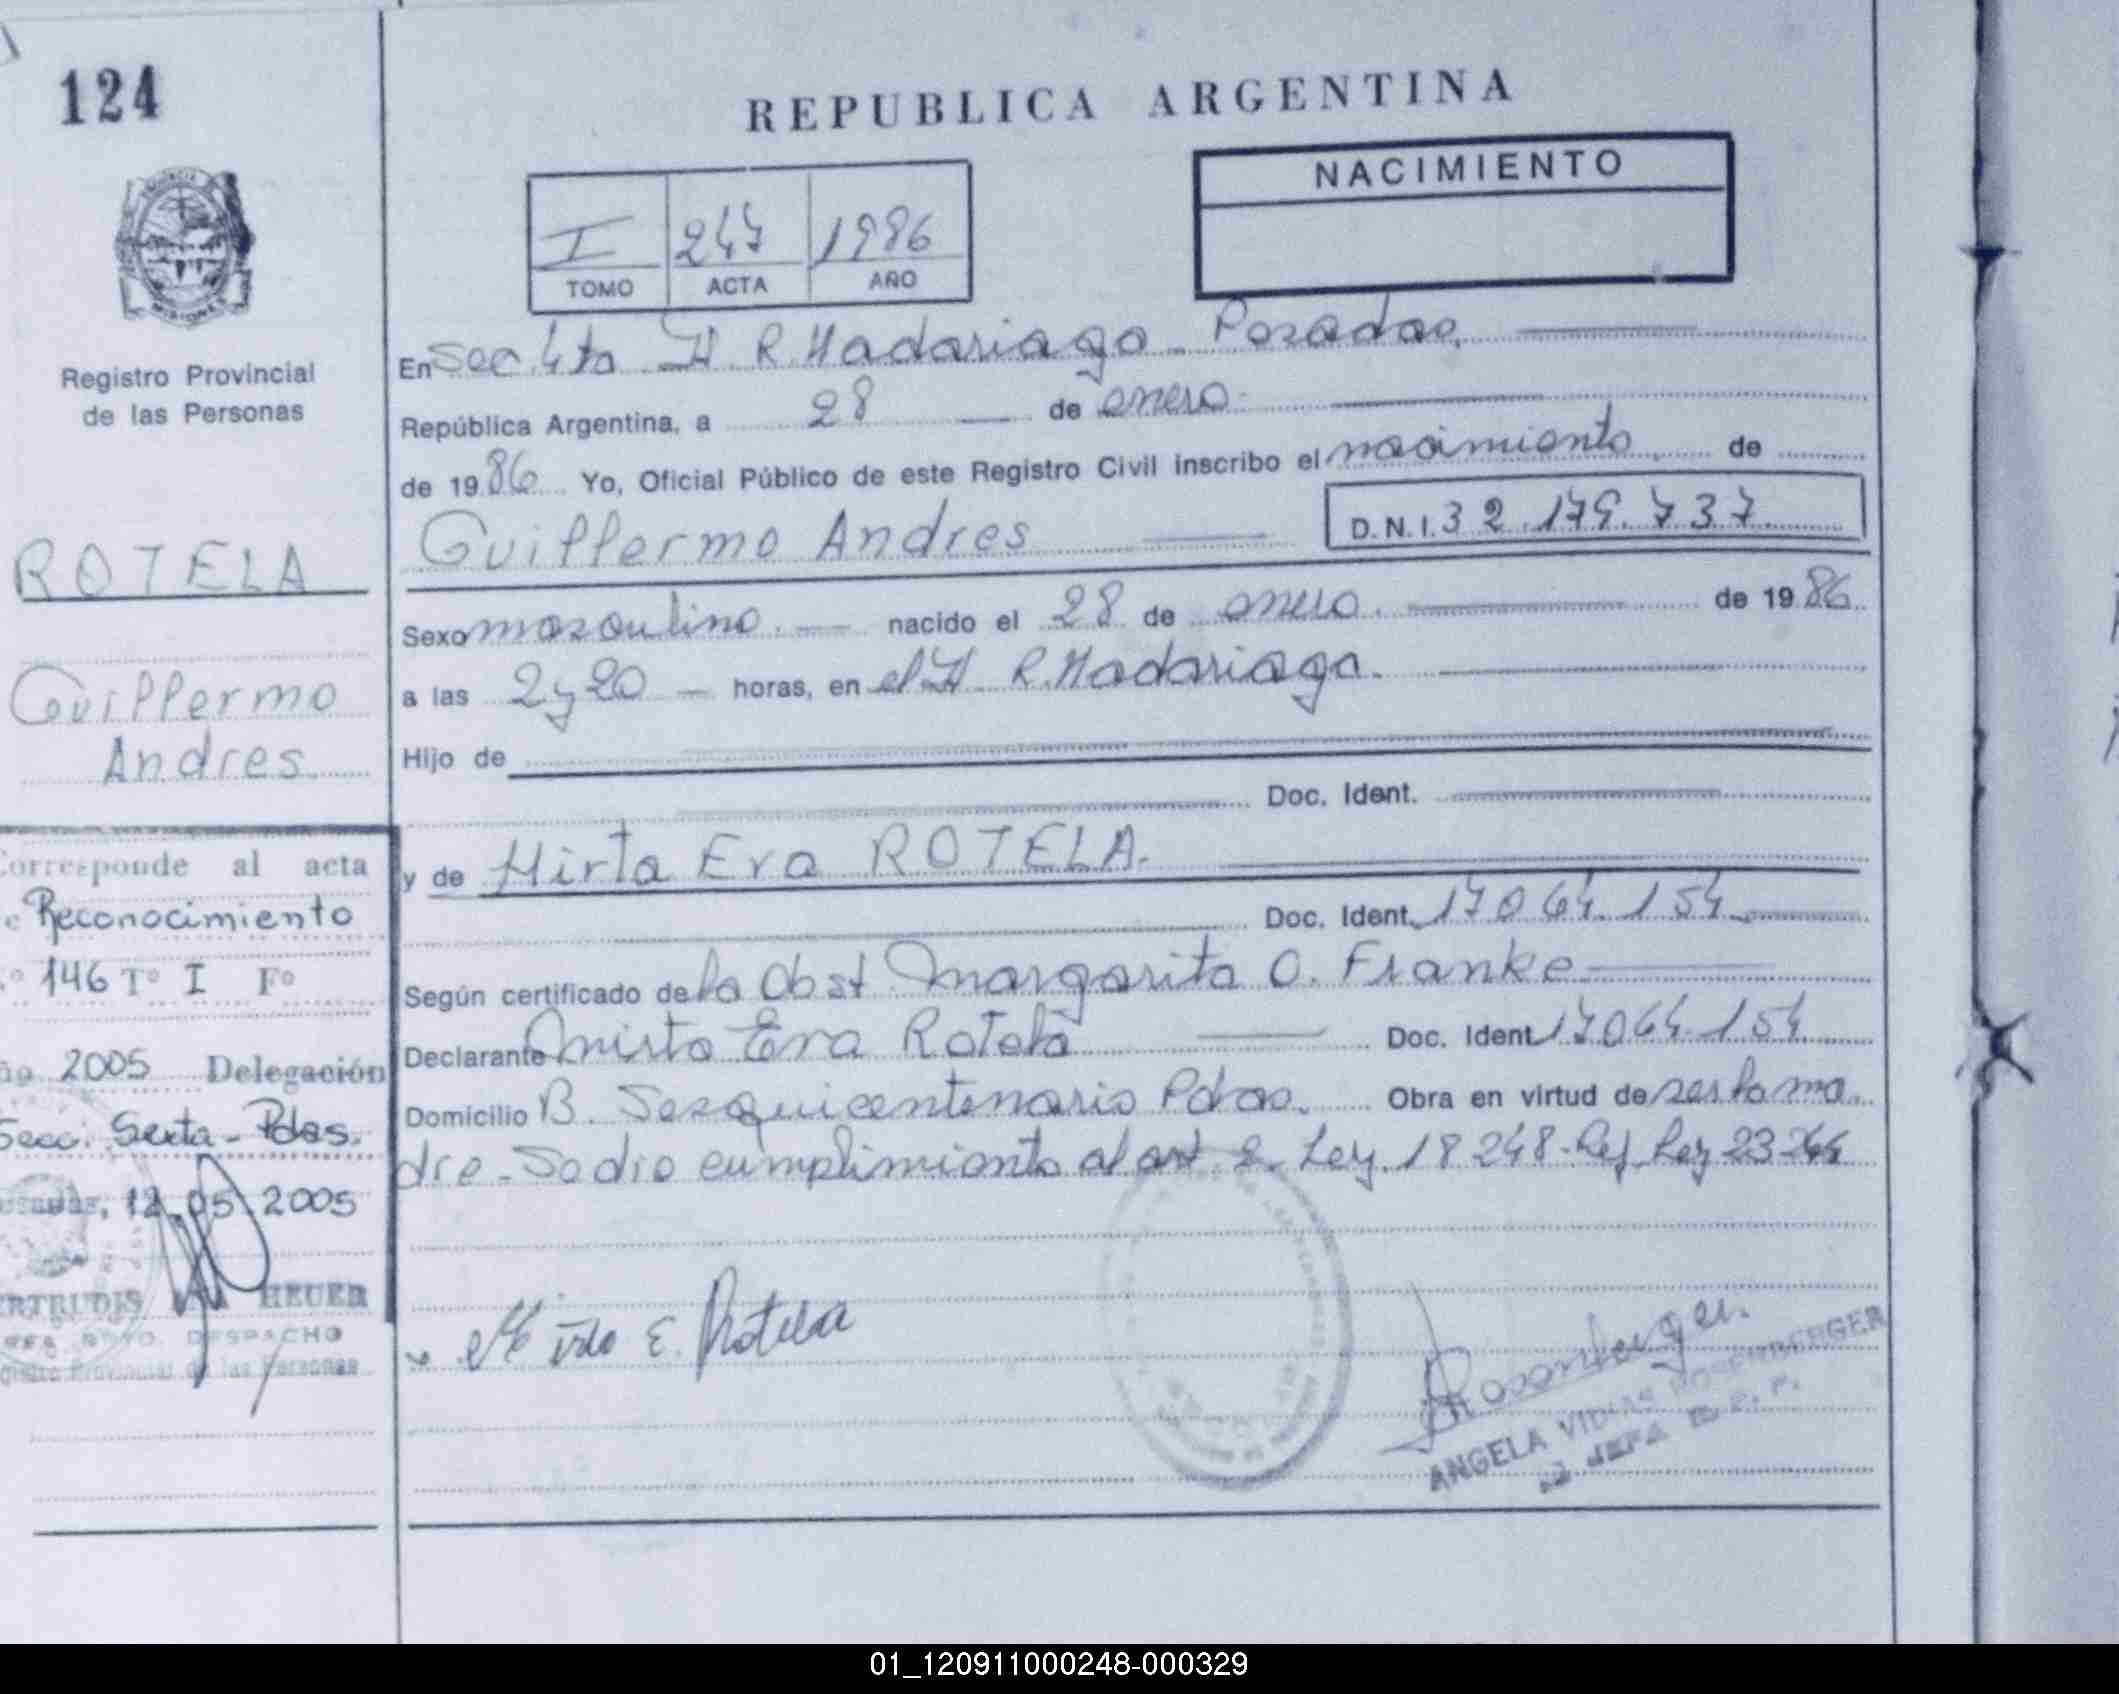 124
Registro Provincial
de las Personas
ROTELA
Guillermo
Andres
Corresponde al acta
Reconocimiento
146 Tº I Fº
2005 Delegación
Secc. Sexta - Pdas.
12.05.2005
HEUER
DESPACHO
Registro Provincial de las Personas
REPUBLICA ARGENTINA
NACIMIENTO
I 247 1986
TOMO ACTA AÑO
En Sec. 4ta H R. Madariaga - Posadas.
República Argentina, a 28 de enero
de 1986 Yo, Oficial Público de este Registro Civil inscribo el nacimiento de
Guillermo Andres D.N.I. 32.179.737
Sexo masculino. nacido el 28 de enero. de 1986
a las 2 y 20 horas, en el H R. Madariaga.
Hijo de
Doc. Ident.
y de Mirta Eva ROTELA.
Doc. Ident. 17064.154
Según certificado de la Obst Margarita O. Franke
Declarante Mirta Eva Rotela Doc. Ident 17064.154
Domicilio B. Sesquicentenario Pdas. Obra en virtud de ser la ma
dre - Se dio cumplimiento al art 2. Ley. 18248 - Ley 23264
E. Rotela
Rosenberger
ANGELA ROSENBERGER
JEFA
01_120911000248-000329